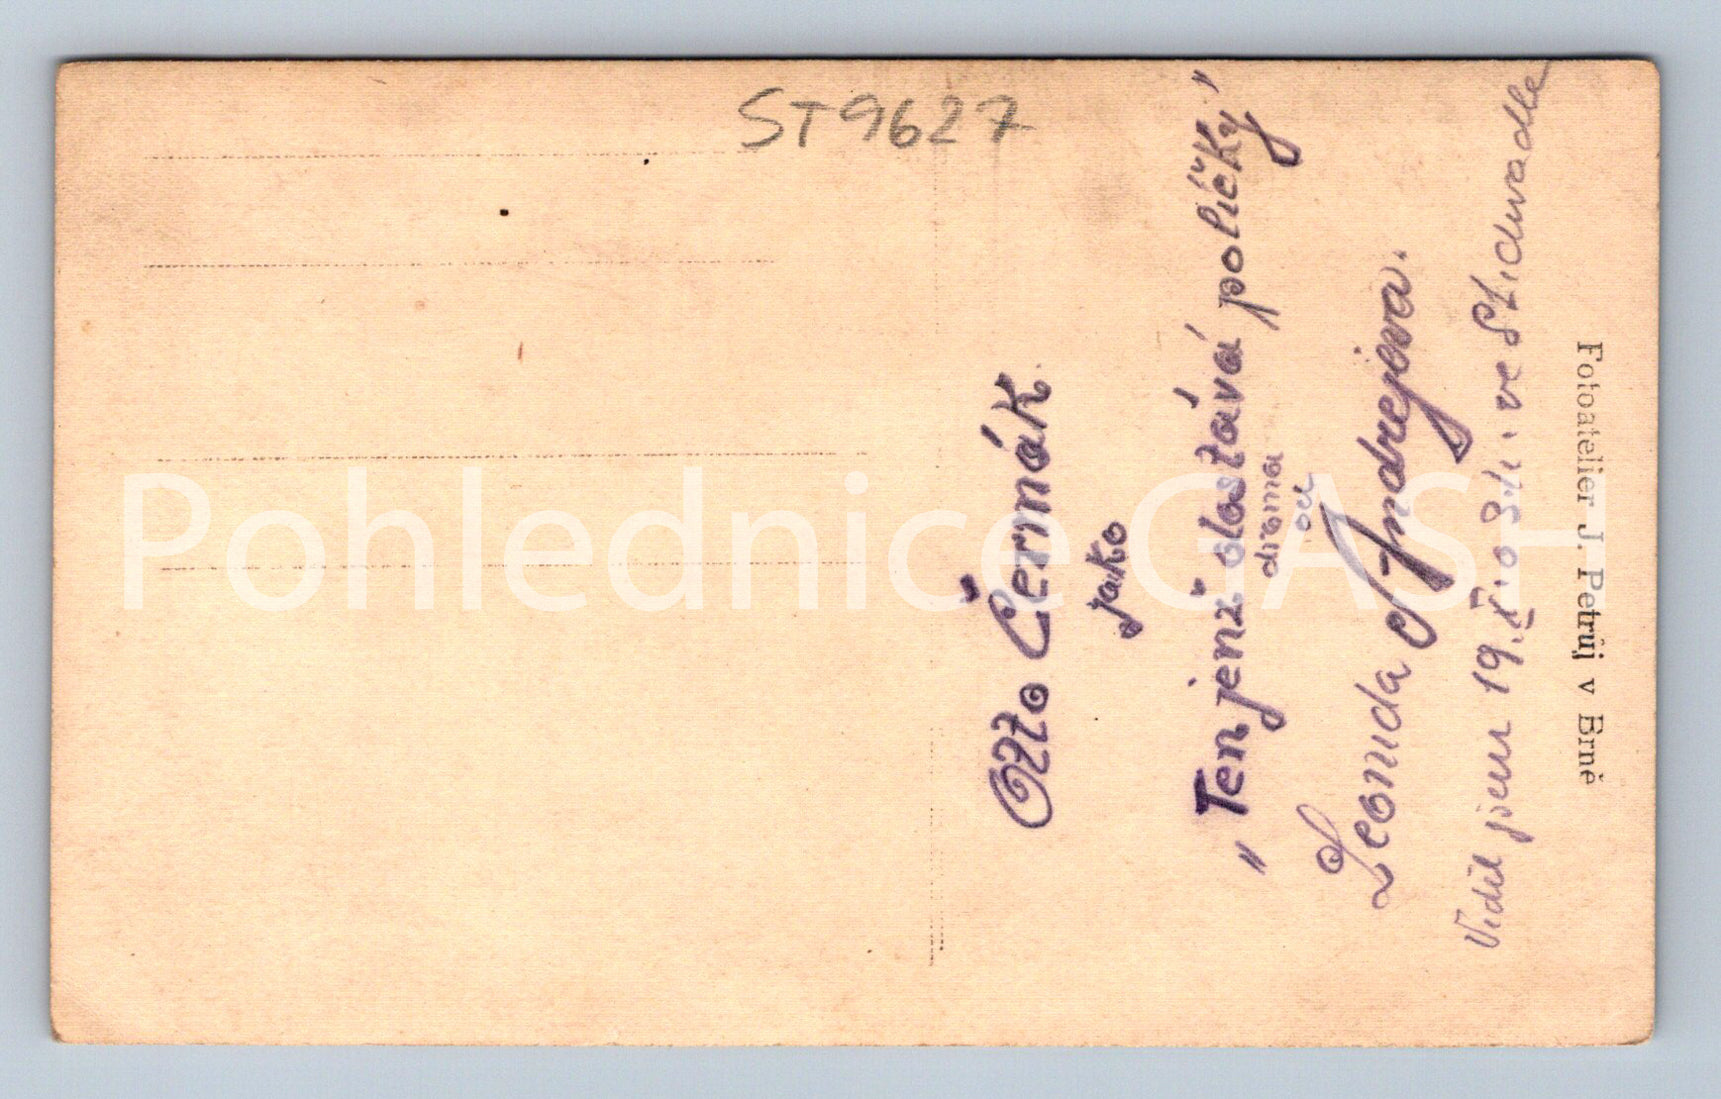 ST9627
Otto Čermák
jako
„Ten jenž dostává políčky"
drama
od
Leonida Andrejeva.
Viděl jsem 19. ve St. divadle
Fotoatelier J. Petrůj v Brně
Pohlednice GASH